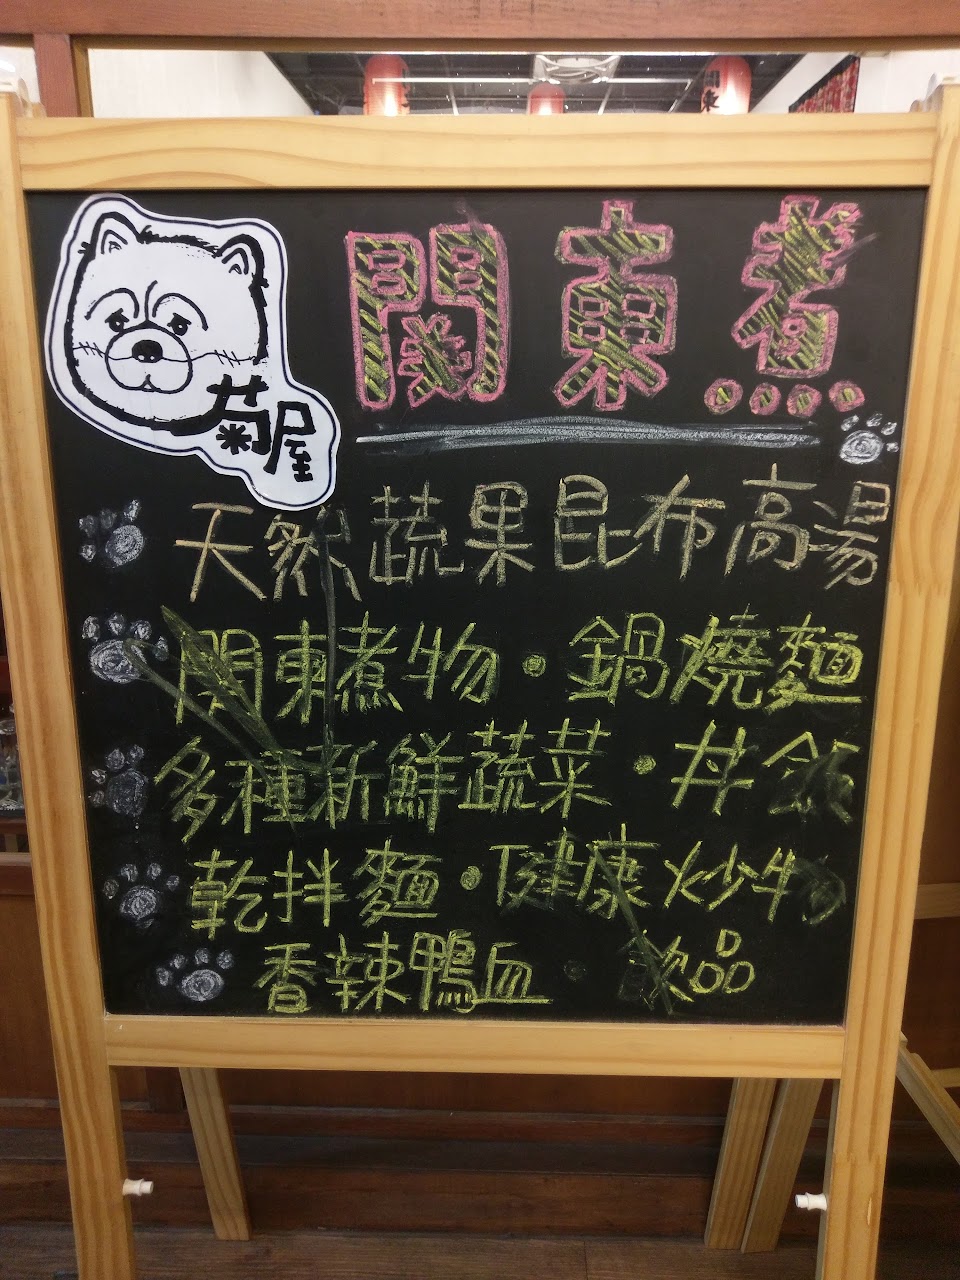 關東煮
菊屋
天然蔬果昆布高湯
關東煮物・鍋燒麵
多種新鮮蔬菜・丼飯
乾拌麵・健康炒物
香辣鴨血・飲品
東